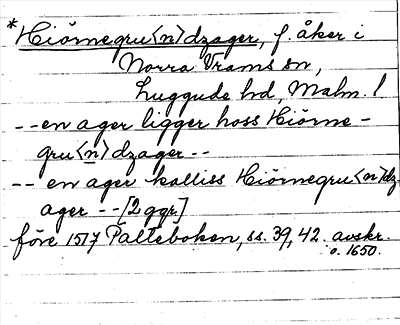 *Hiörnegru<n>dzager, f. åker i
Norra Vrams sn,
Luggude hd, Malm. l
--en ager ligger hoss Hiörne-
gru<n>dzager--
-- en ager kalliss Hiörnegru<n>dz-
ager --[2 ggr]
före 1517 Palteboken, ss. 39, 42. avskr.
o. 1650.